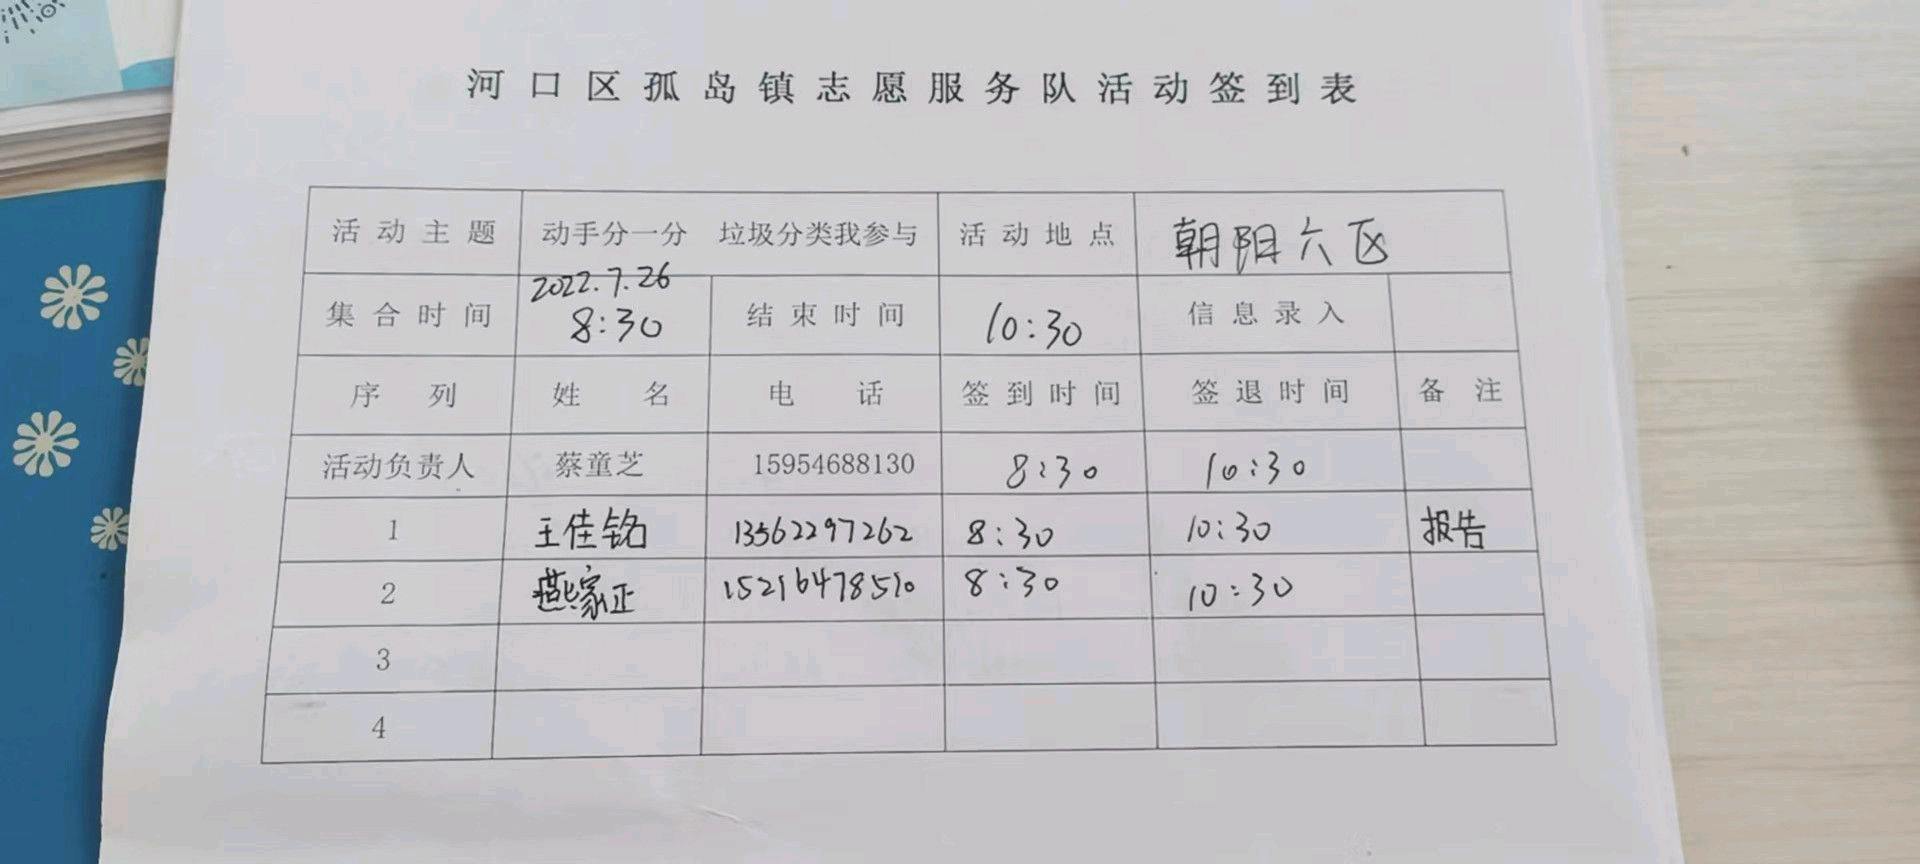 河口区孤岛镇志愿服务队活动签到表
活动主题 动手分一分 垃圾分类我参与 活动地点 朝阳六区
集合时间 2022.7.26 8:30 结束时间 10:30 信息录入
序列 姓名 电话 签到时间 签退时间 备注
活动负责人 蔡童芝 15954688130 8:30 10:30
1 王佳铭 13562297262 8:30 10:30 报告
2 燕家正 15216478510 8:30 10:30
3
4